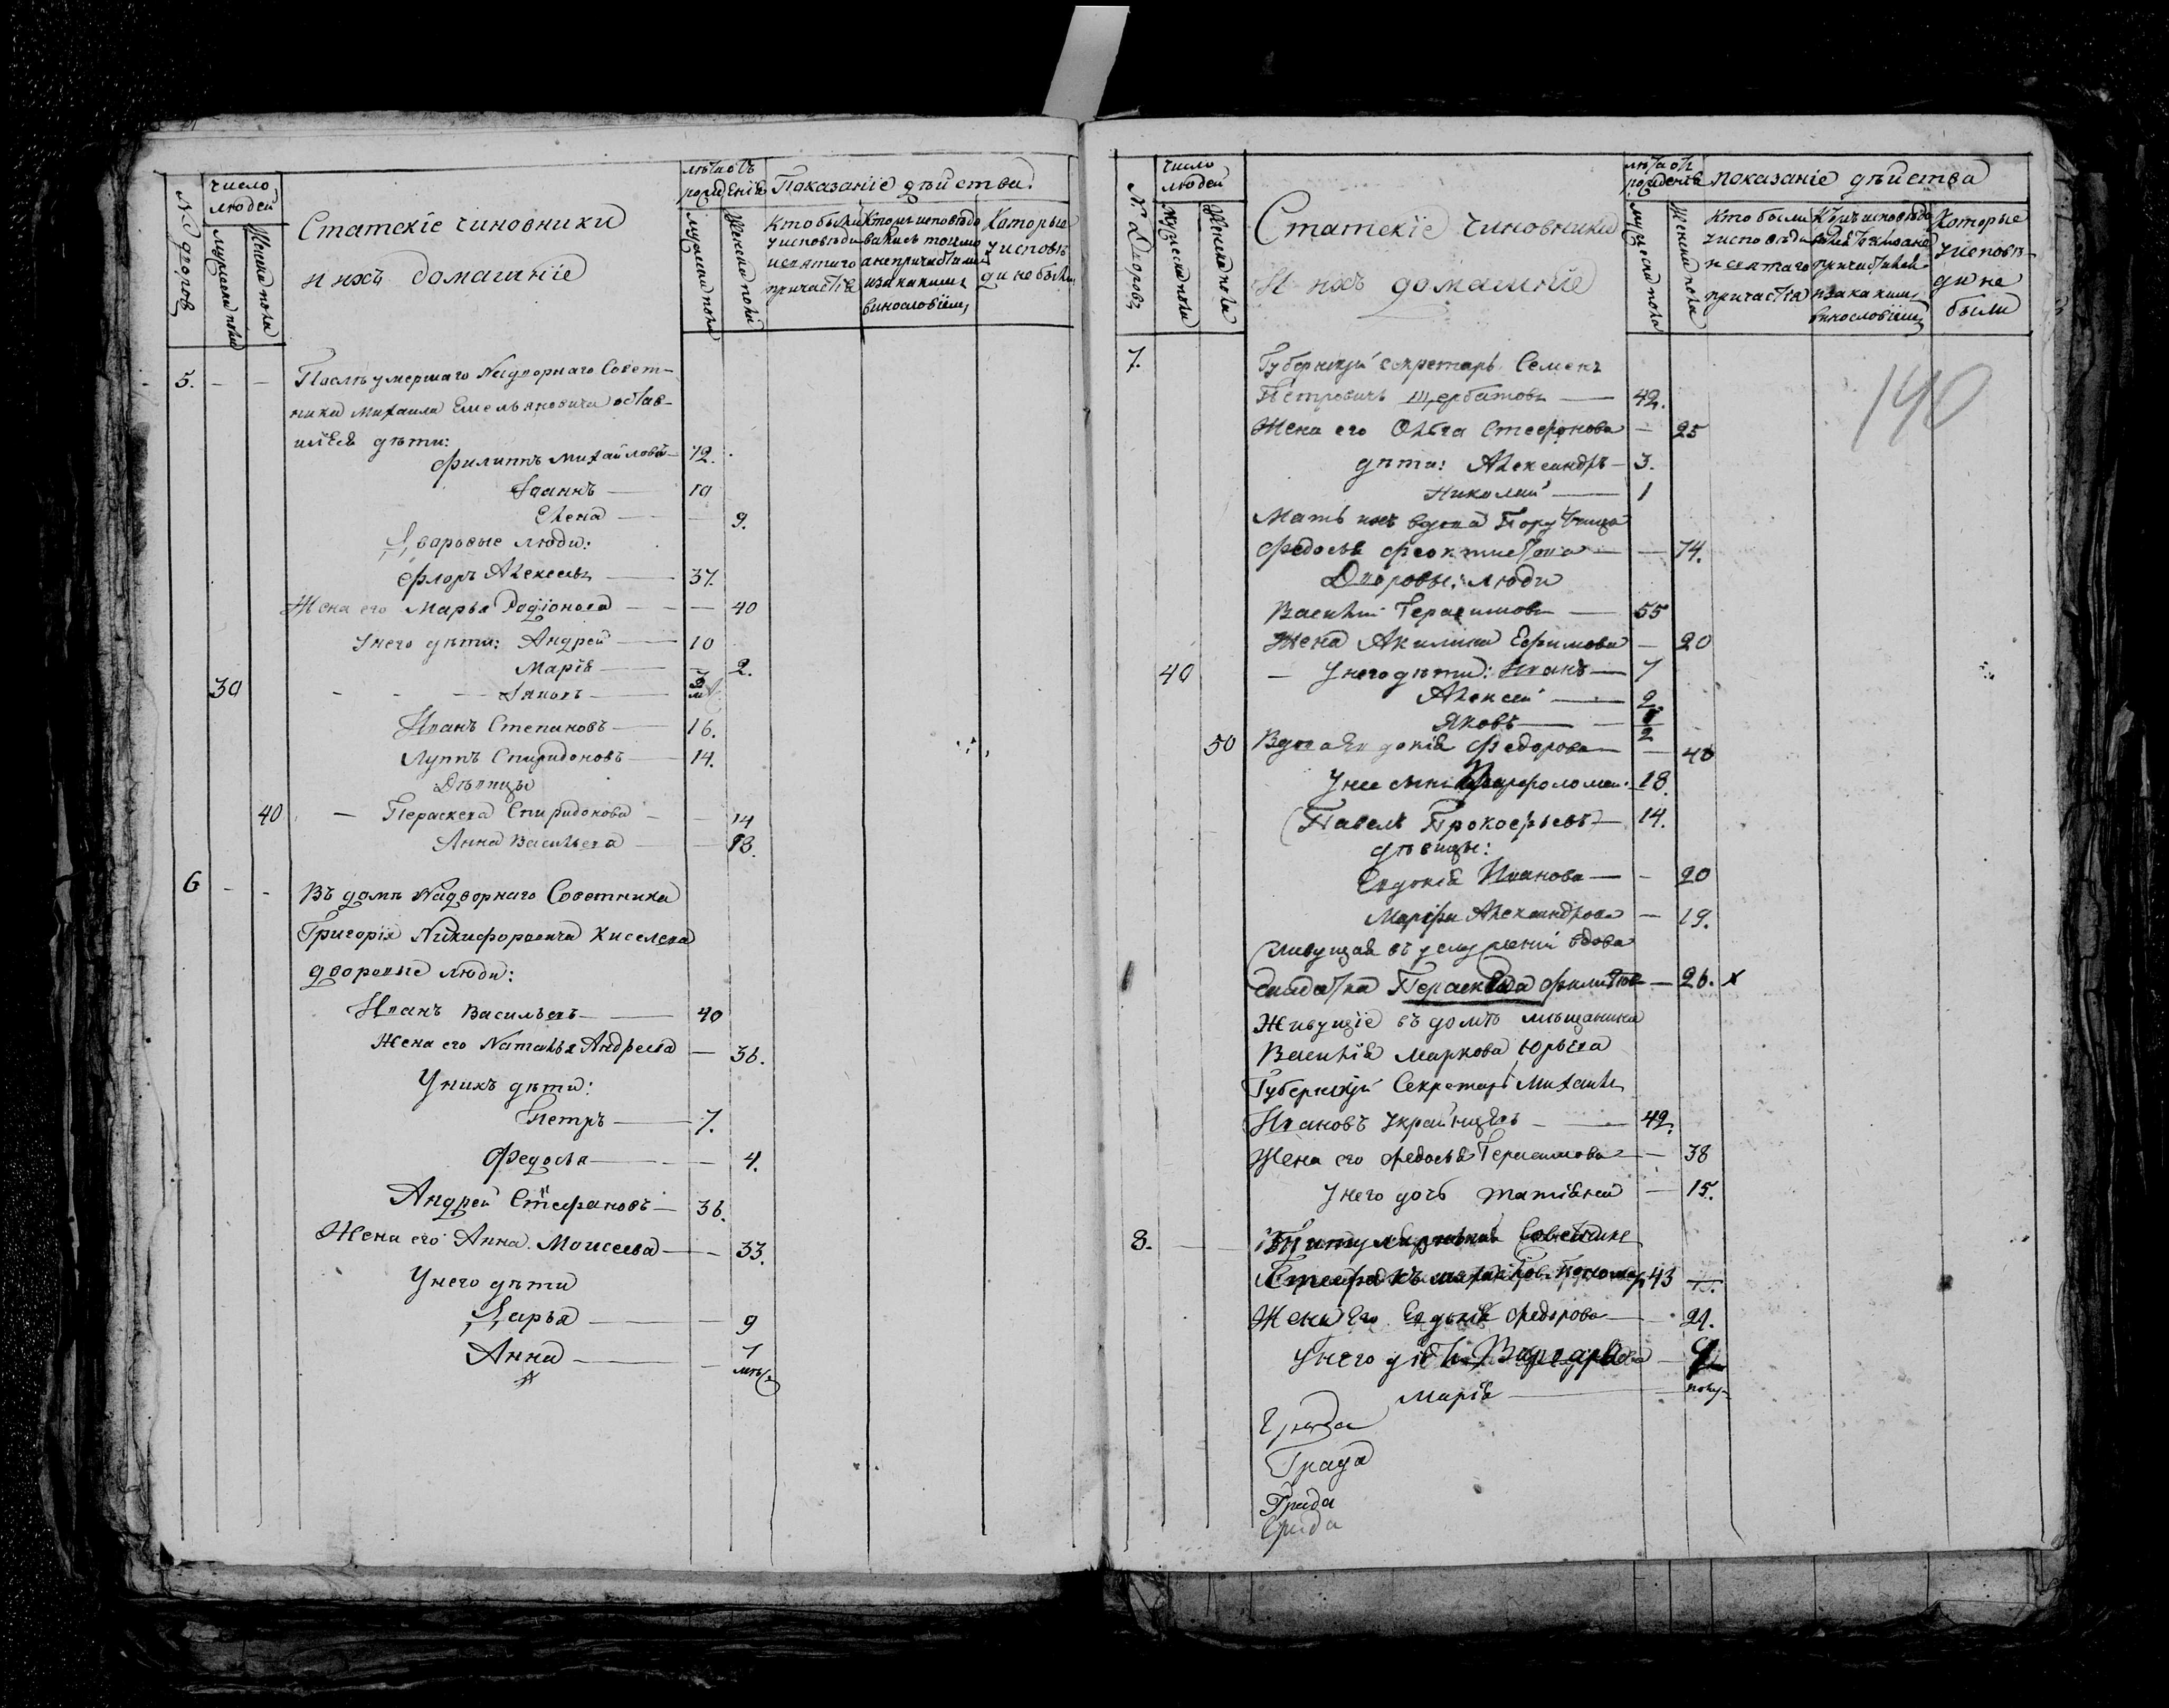 № дворов
число
людей
мужеска пола
женска пола
Статскіе чиновники
и ихъ домашніе
лѣта отъ
рожденія
мужеска пола
женска пола
Показаніе дѣйства.
Кто были
у исповѣди
и святаго
причастія
Кто исповѣдо
вались токмо
а не причастились
и за какимъ
винословіем
Которые
у исповѣ
ди не были
5. - - Послѣ умершаго Надворнаго Совет-
ника Михаила Емельяновича остав-
шіеся дѣти:
Филиппъ Михайловъ 12.
Іоаннъ 10
Елена 9.
Дворовые люди:
Флоръ Алексеевъ 37.
Жена его Марья Родіонова 40
У него дѣти: Андрей 10
Марія 2.
30 Іаковъ
Иванъ Степановъ 16.
Луппъ Спиридоновъ 14.
Дѣвицы
40 Пераскева Спиридонова 14
Анна Васильева 13.
6 - - Въ домѣ Надворнаго Советника
Григорія Никифоровича Киселева
дворовые люди:
Иванъ Васильевъ 40
Жена его Наталья Андреева 36.
У нихъ дѣти:
Петръ 7.
Федосья 4.
Андрей Стефановъ 36.
Жена его Анна Моисеева 33.
У него дѣти
Дарья 9
Анна
№ Дворовъ
число
людей
мужеска пола
женска пола
Статскіе чиновники
И ихъ домашніе
лѣта отъ
рожденія
мужеска пола
женска пола
показаніе дѣйства
Кто были
у исповѣди
и святаго
причастія
и за каким
винословіем
Которые
у исповѣ-
ди не
были
140
7. Губернскій секретарь Семенъ
Петровичъ Щербатовъ 42.
Жена его Ольга Стефанова 25
дѣти: Александръ 3.
Николай 1
Мать ихъ вдова Поручица
Федосья Феоктистова 74.
Дворовые люди
Василій Герасимовъ 55
Жена Акилина Ефимова 20
40 У него дѣти: Иванъ 7
Алексей 2
Яковъ
50 Вдова Евдокія Федорова 40
У нее сынъ 18.
Павелъ Прокофьевъ 14.
дѣвицы:
Евдокія Иванова 20
Марфа Александрова 19.
вдова
Солдатка Пераскева 26. x
Живущіе въ домѣ мѣщанина
Василія Маркова Юрьева
Губернскій Секретарь Михаилъ
Ивановъ 42.
Жена его Федосья Герасимова 38
У него дочь 15.
8. Титулярный Советникъ
43
Жена Его Евдокія Федорова 21.
У него дѣти Варвара
Марія
Града
Града
Града